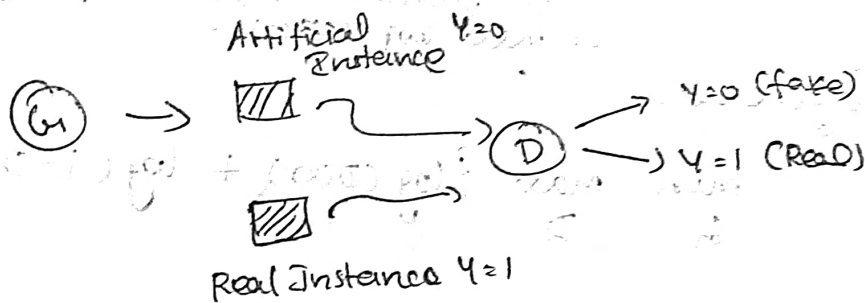 Artificial Y=0
Instance
G
D
Y=0 (fake)
Y=1 (Real)
Real Instance Y=1